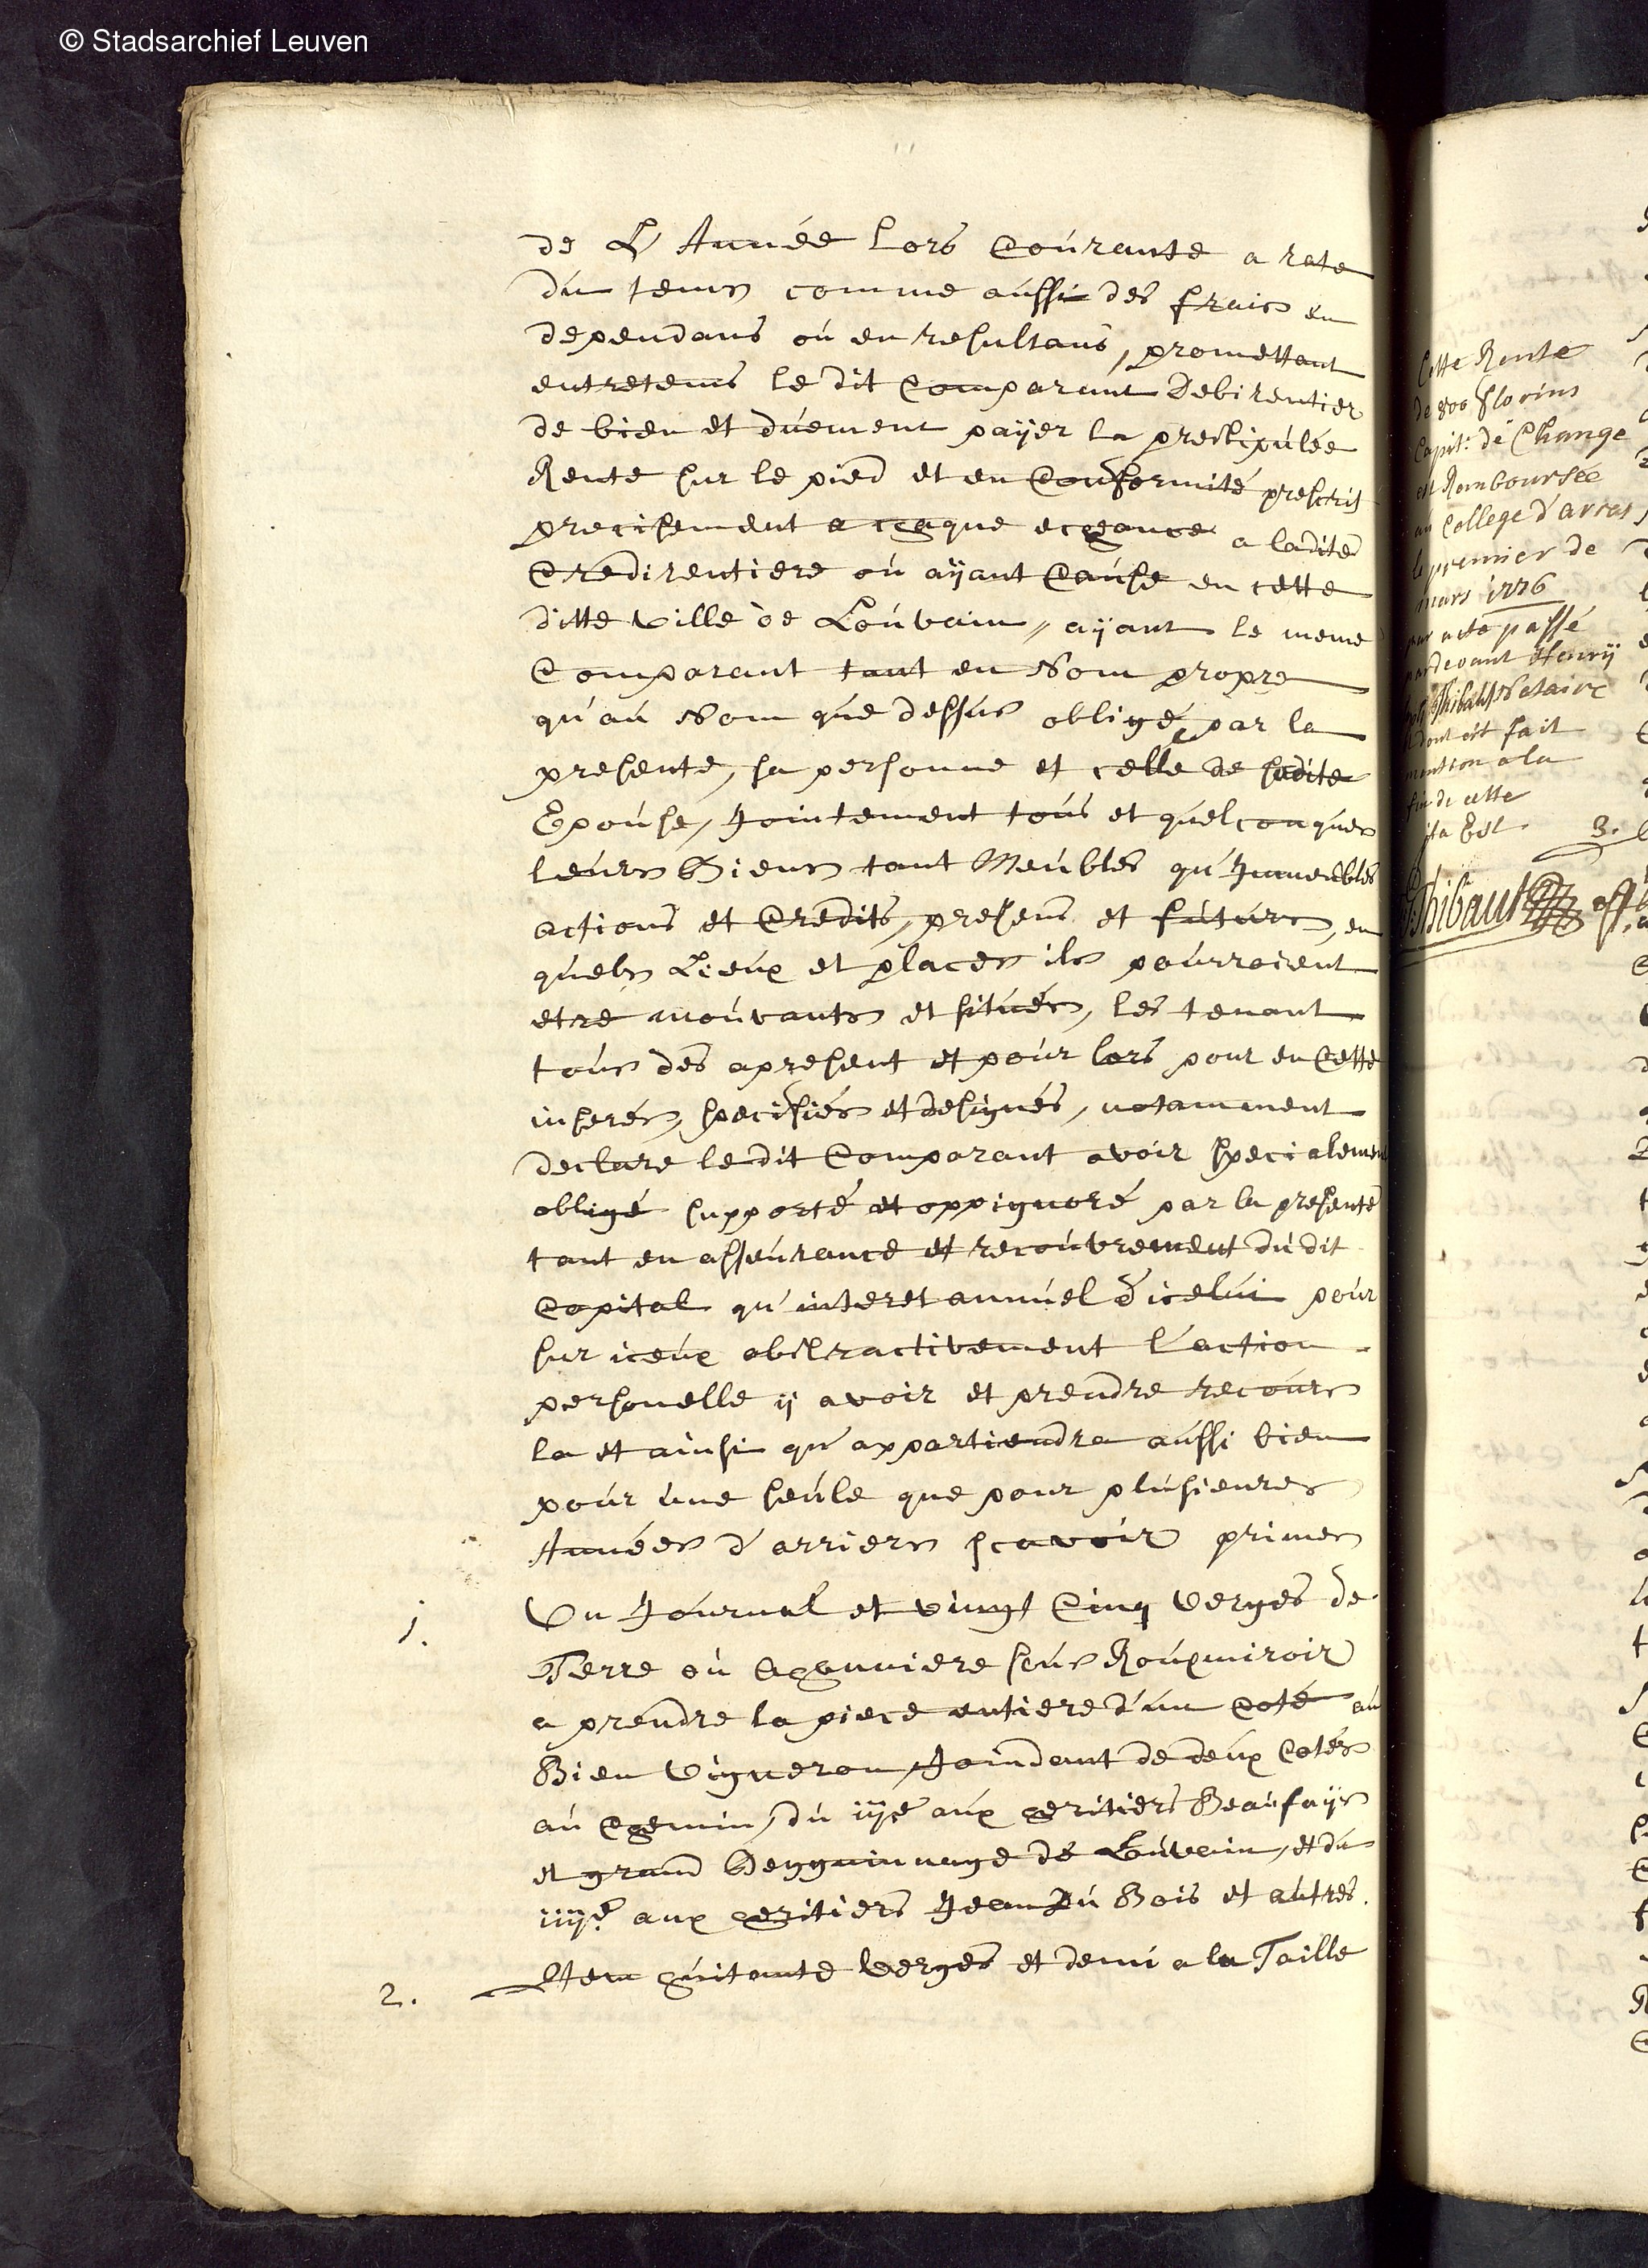 © Stadsarchief Leuven
de L'Année lors Courante a rate
du tems comme aussi des frais en
dependans ou en resultans, promettant
entretems le dit Comparant Debirentier
de bien et duement païjer la prestipulée
Rente sur le pied et en Conformité prescrit
precisement a chaque echeance a ladite
Credirentiere ou aÿant Cause en cette
ditte Ville de Louvain, aÿant le meme
Comparant tant en Nom propre
qu'au Nom que dessus obligé par la
presente, sa personne et celle de sadite
Epouse, Jointement tous et quelconques
leurs Biens tant Meubles qu'Immeubles
actions et Credits, presens et futurs, en
quels Lieux et places ils pourroient
etre mouvants et situés, les tenant
tous des apresent et pour lors pour en Cette
inserés, specifiés et designés, notamment
declare ledit Comparant avoir specialement
obligé supporté et oppignoré par la presente
tant en asseurance et recouvrement du dit
Capital qu'interet annuel d'icelui pour
sur iceux abstractivement l'action
personelle ÿ avoir et prendre recours
la et ainsi qu'appartiendra aussi bien
pour une seule que pour plusieures
Années d'arriers scavoir primes
1. Un Journal et vingt Cinq Verges de
Terre ou Chenviere sous Rouxmiroir
a prendre la piece entiere d'un Coté au
Bien Vigneron, Joindant de deux Cotés
au Chemin, du iije aux heritiers Beaufaÿs
et grand Begguinnage de Louvain, et du
iiije aux heritiers Jean Du Bois et autres.
2. Item huitante Verges et demi a la Taille
Cette Rente
de 800 florins
Capit: de Change
est Remboursée
au College d'arras
le premier de
mars 1776
par acte passé
pardevant Henrÿ
Thibaut Notaire
dont est fait
mention a la
fin de cette
ita Est
Thibaut
3.